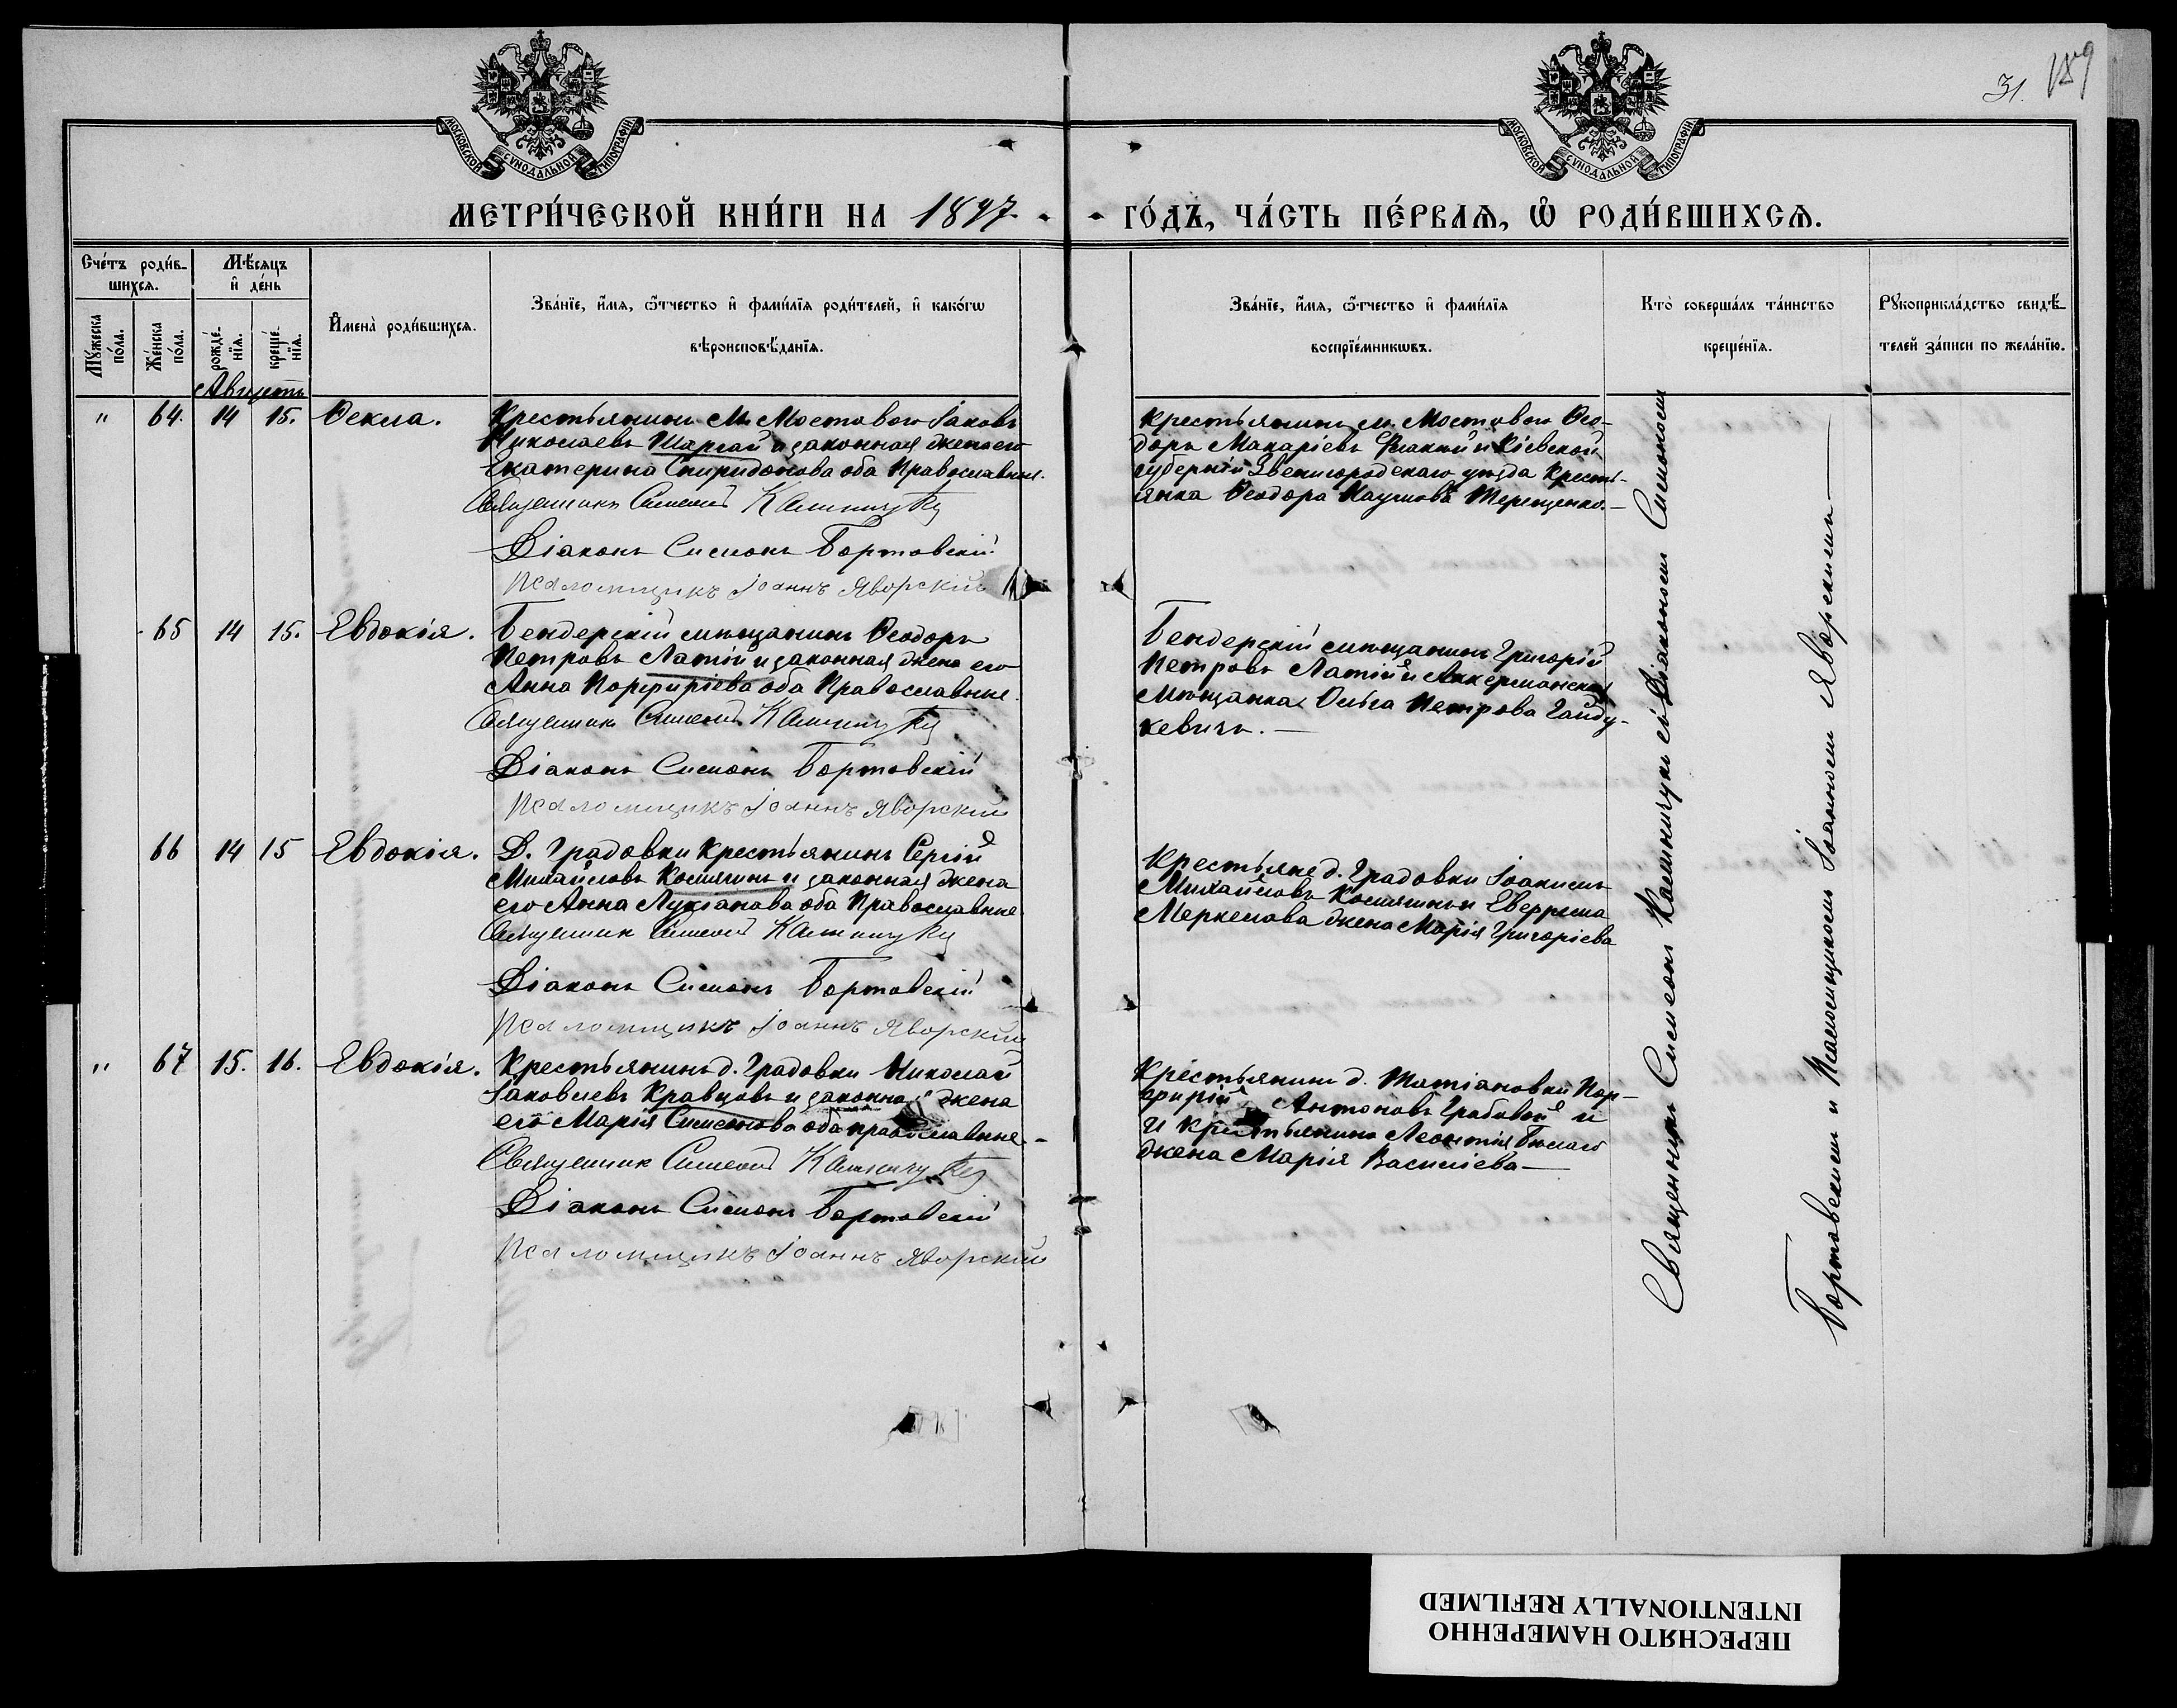 31. 189
МОСКОВСКОЙ СѴНОДАЛЬНОЙ ТИПОГРАФІИ
МОСКОВСКОЙ СѴНОДАЛЬНОЙ ТИПОГРАФІИ
МЕТРИ́ЧЕСКОЙ КНИ́ГИ НА 1897
ГО́ДЪ, ЧА́СТЬ ПЕ́РВАѦ, Ѽ РОДИ́ВШИХСѦ.
Сче́тъ роди́в-
шихсѧ.
Мꙋ́жеска по́ла.
Же́нска по́ла.
Мѣ́сѧцъ
и҆ де́нь
рожде́-
нїѧ.
креще́-
нїѧ.
И҆мена̀ роди́вшихсѧ.
Зва́нїе, и҆́мѧ, ѻ҆́тчество и҆ фами́лїѧ роди́телей, и҆ како́гѡ
вѣроисповѣ́данїѧ.
Зва́нїе, и҆́мѧ, ѻ҆́тчество и҆ фами́лїѧ
воспрїе́мникѡвъ.
Кто̀ соверша́лъ та́инство
креще́нїѧ.
Рꙋкоприкла́дство свидѣ́-
телей за́писи по жела́нїю.
Августъ
" 64. 14 15. Ѳекла.
Крестьянинъ м. Мостового Іаковъ
Николаевъ Шаргай и законная жена его
Екатерина Спиридонова оба Православные.
Священникъ Симеонъ Камничукъ
Діаконъ Симеонъ Бортовскій
Псаломщикъ Іоаннъ Яворскій
Крестьянинъ м. Мостового Ѳео-
доръ Макаріевъ и Кіевской
губерніи Звенигородскаго уѣзда Кресть-
янка Ѳеодора Наумова Терещенко.—
65 14 15. Евдокія.
Бендерскій мѣщанинъ Ѳеодоръ
Петровъ Латій и законная жена его
Анна Порфиріева оба Православные.
Священникъ Симеонъ Камничукъ
Діаконъ Симеонъ Бортовскій
Псаломщикъ Іоаннъ Яворскій
Бендерскій мѣщанинъ Григорій
Петровъ Латій и Аккерманская
мѣщанка Ольга Петрова Гайду-
кевичъ.—
66 14 15 Евдокія.
Д. Градовки Крестьянинъ Сергій
Михайловъ и законная жена
его Анна Лукіанова оба Православные
Священникъ Симеонъ Камничукъ
Діаконъ Симеонъ Бортовскій
Псаломщикъ Іоаннъ Яворскій
Крестьяне д. Градовки Іоакимъ
Михайловъ и Евфрема
Меркелова жена Марія Григоріева
" 67 15. 16. Евдокія.
Крестьянинъ д. Градовки Николай
Іаковлевъ Кравцовъ и законная жена
его Марія Симеонова оба православные.—
Священникъ Симеонъ Камничукъ
Діаконъ Симеонъ Бортовскій
Псаломщикъ Іоаннъ Яворскій
Крестьянинъ д. Татіановки Пор-
фирій Антоновъ Грабовой и
и крестьянина Леонтія Бѣлаго
жена Марія Василіева—
Священникъ Симеонъ Камничукъ съ Діакономъ Симеономъ
Бортовскимъ и Псаломщикомъ Іоанномъ Яворскимъ—
ПЕРЕСНЯТО НАМЕРЕННО
INTENTIONALLY REFILMED